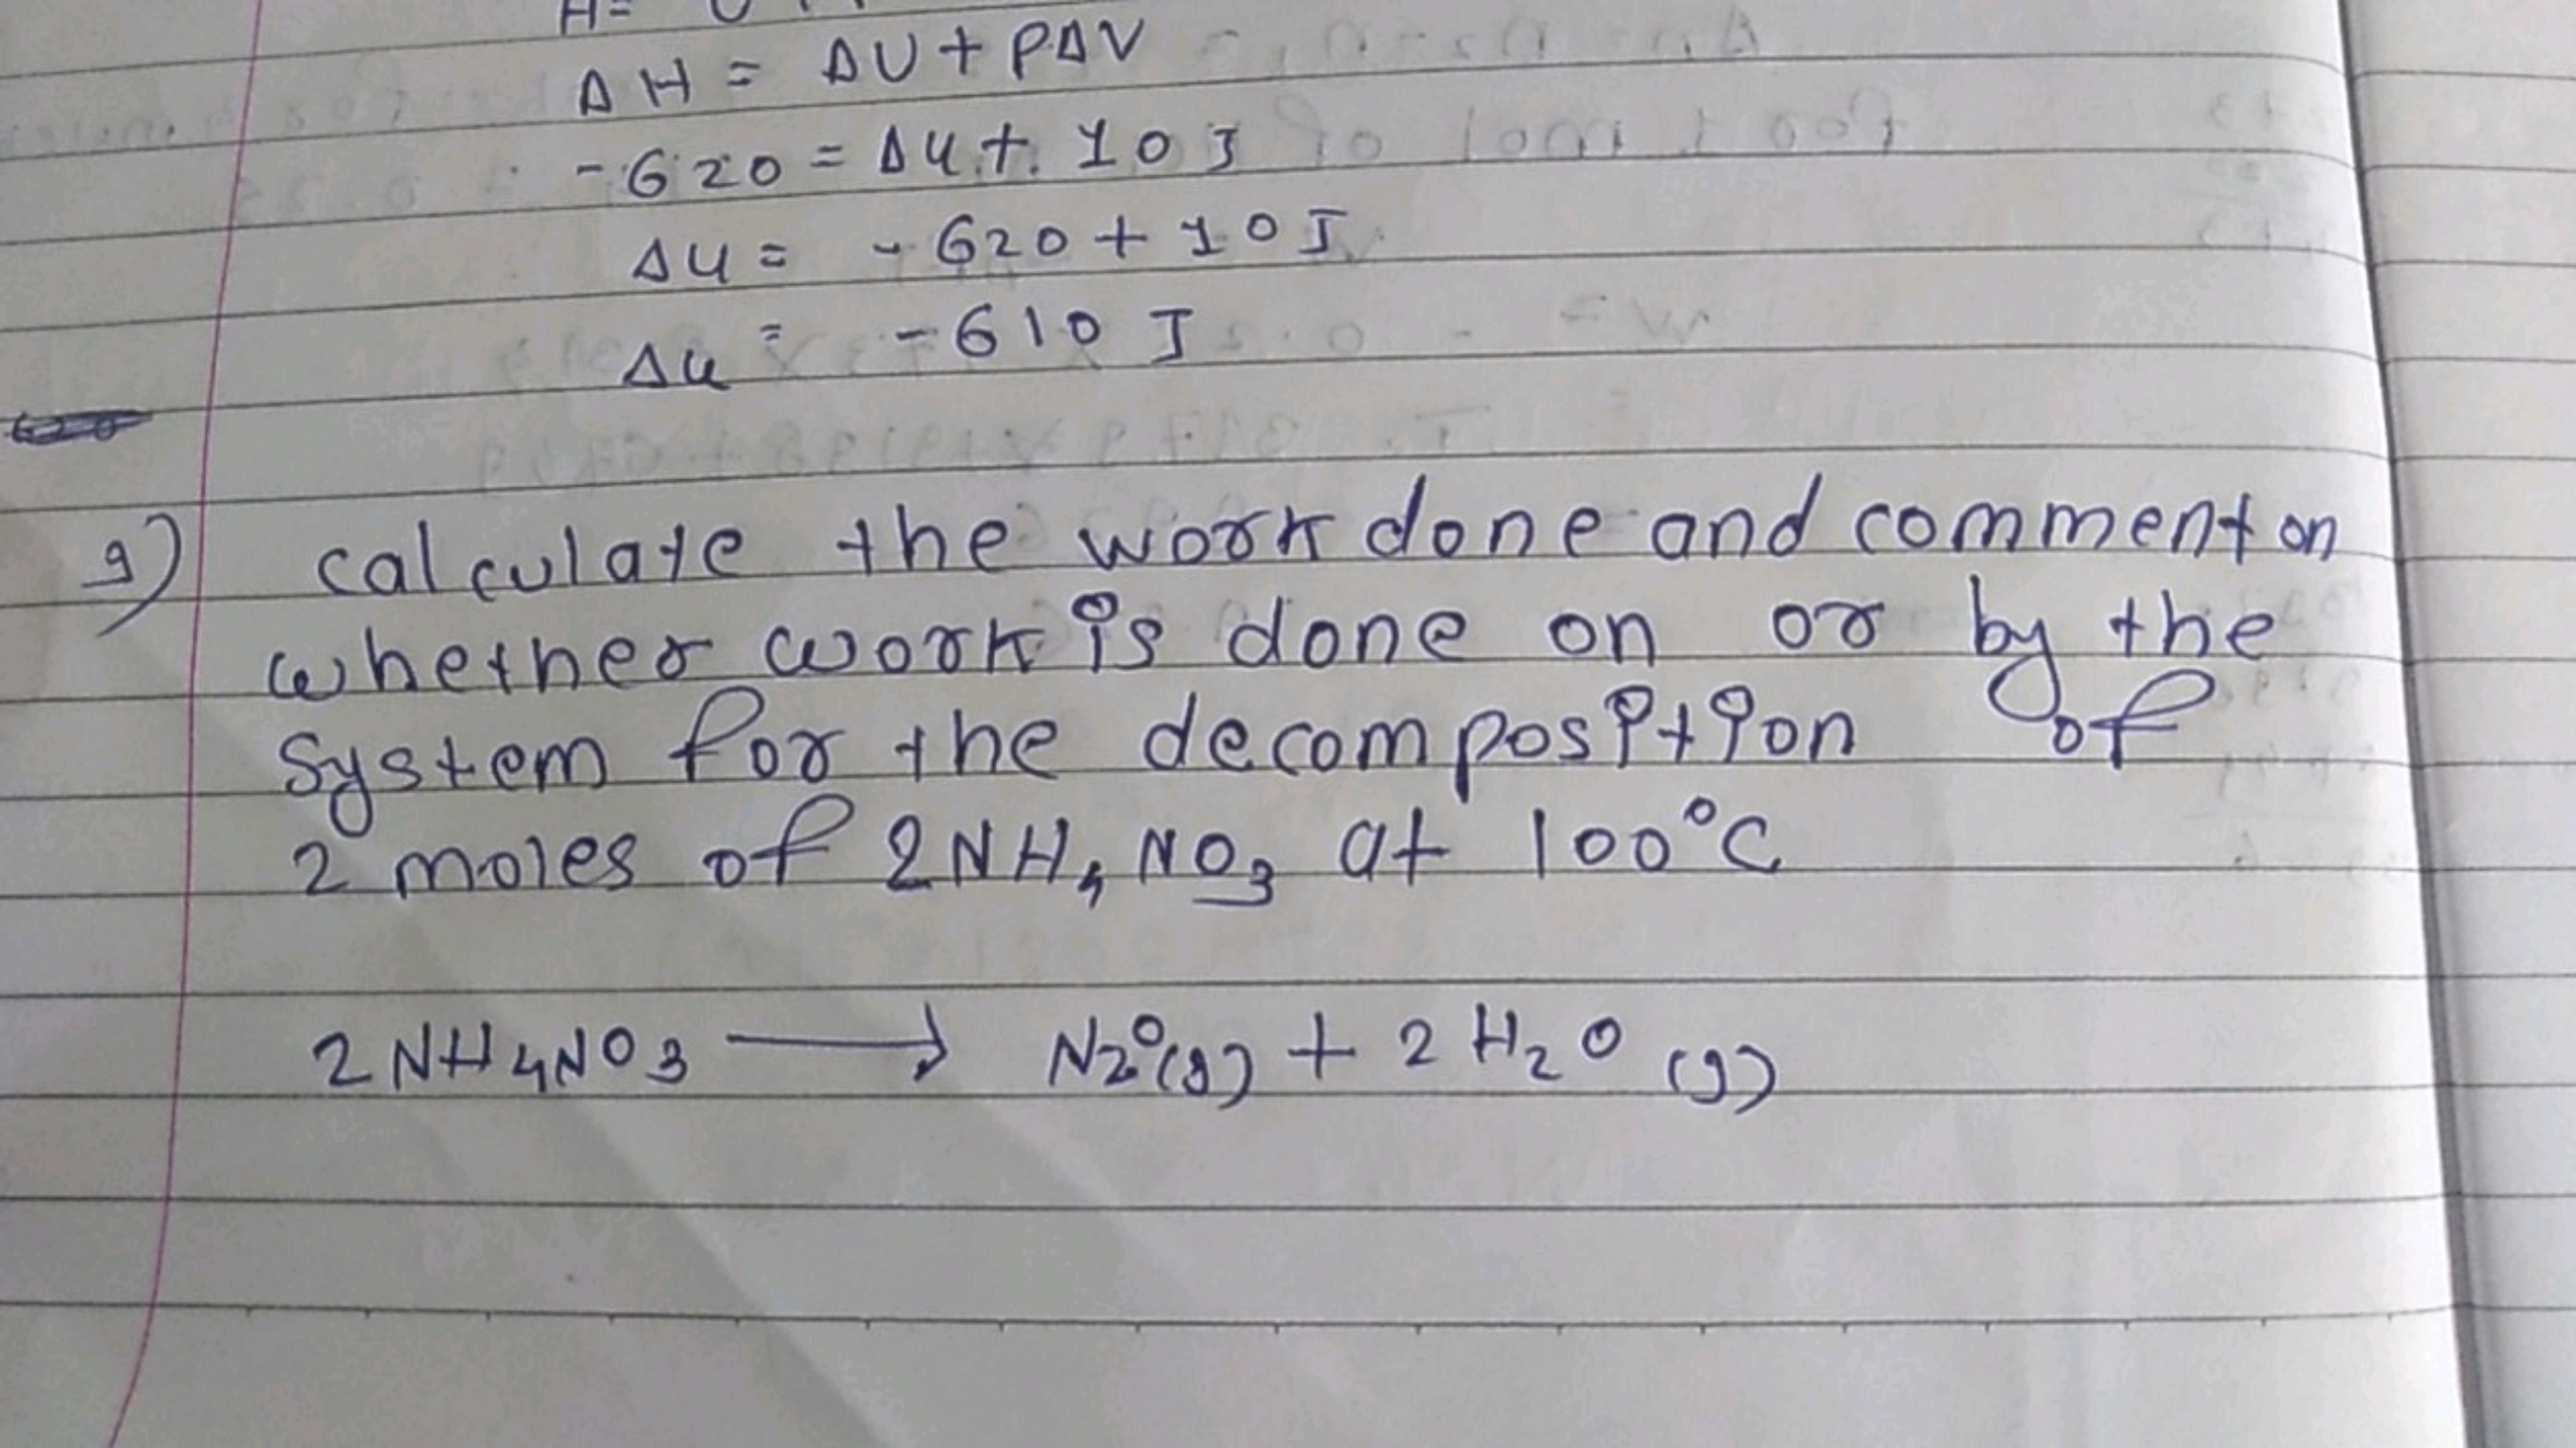 H= U
ΔH = ΔU + PΔV
-620 = Δu + 10 J
Δu = -620 + 10 J
Δu = -610 J
9) calculate the work done and comment on
whether work is done on or by the
system for the decomposition of
2 moles of 2NH₄NO₃ at 100°C
2NH₄NO₃ ⟶ N₂O(g) + 2H₂O(g)